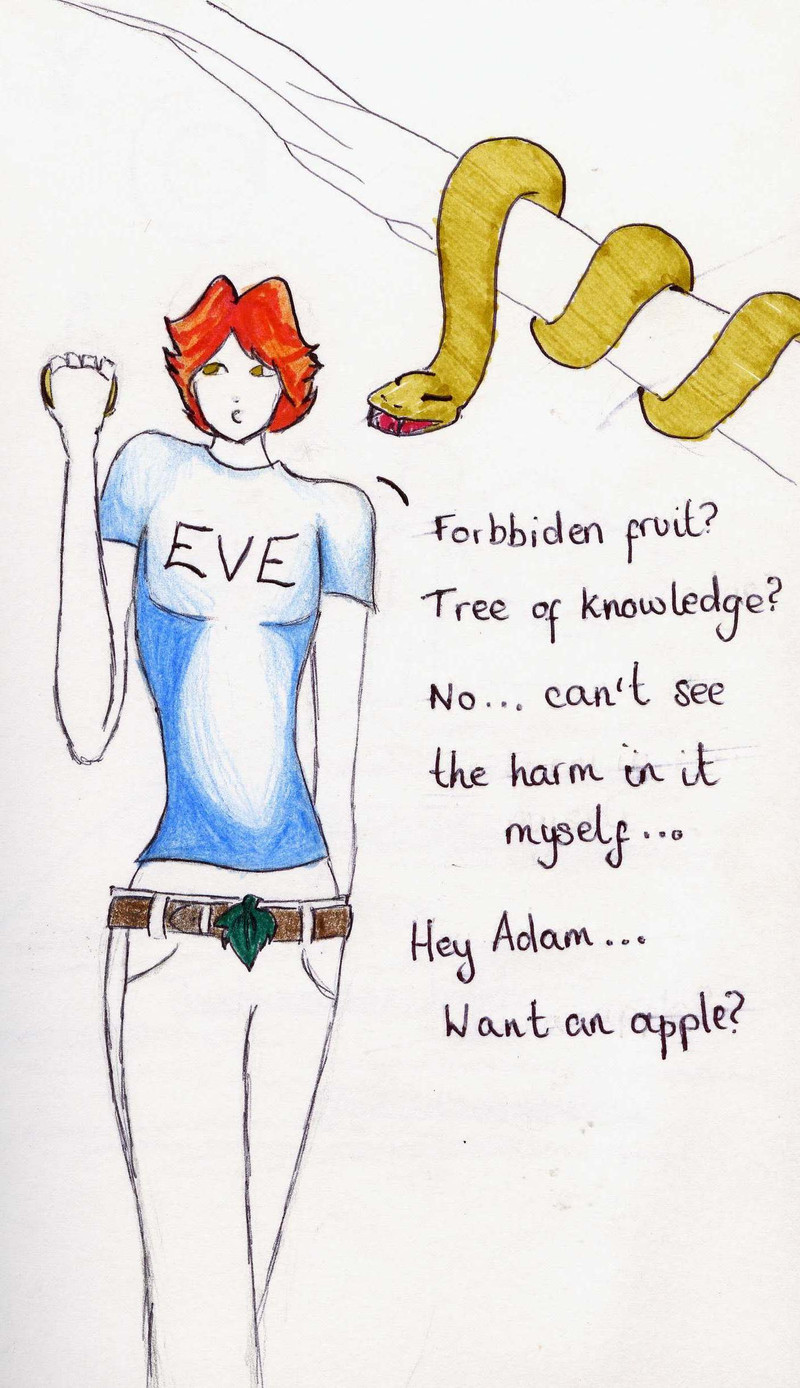 EVE
Forbbiden fruit?
Tree of knowledge?
No... can't see
the harm in it
myself...
Hey Adam...
Want an apple?